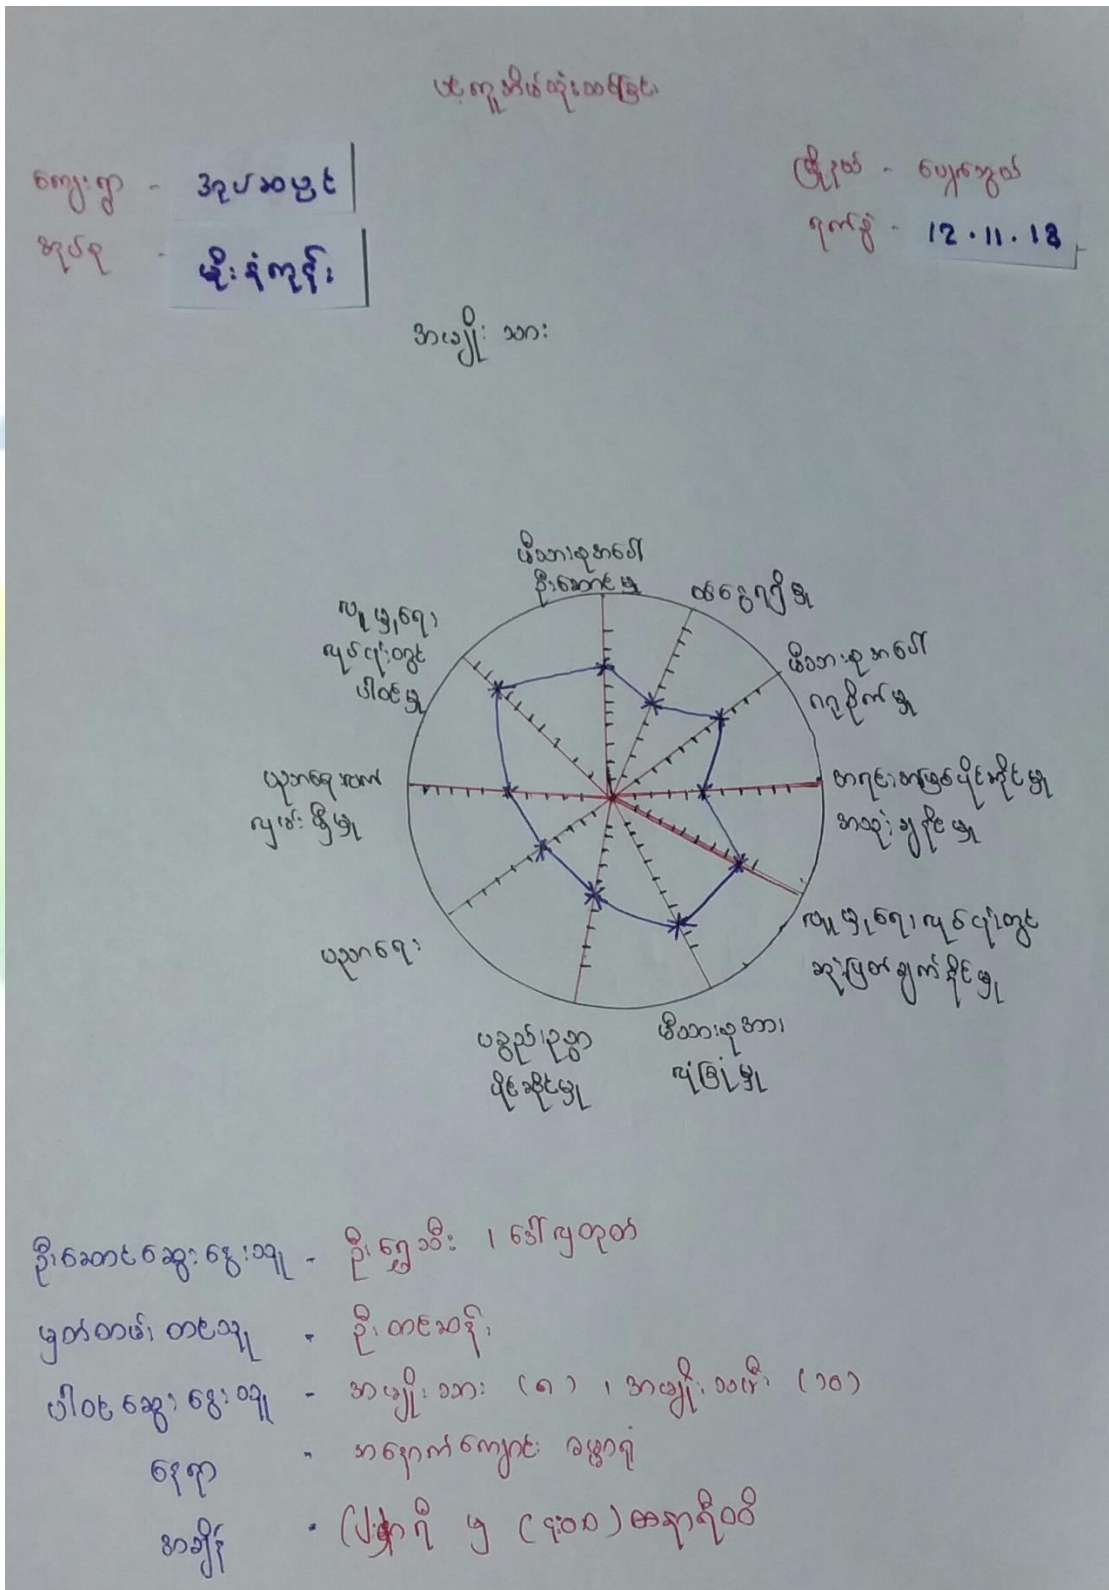 ပင့်ကူအိမ်သုံးသပ်ခြင်း
ကျေးရွာ - အုပ်ဆမွှင်
မြို့နယ် - ပျော်ဘွယ်
အုပ်စု - မိုးနံကုန်း
ရက်စွဲ - 12.11.18
အမျိုးသား
မိသားစုအပေါ်
ဦးဆောင်မှု
ဝင်ငွေရရှိမှု
မိသားစုအပေါ်
ဂရုစိုက်မှု
အရင်းအမြစ်ပိုင်ဆိုင်မှု
အသုံးချနိုင်မှု
လူမှုရေးလုပ်ငန်းတွင်
ဆုံးဖြတ်ချက်နိုင်မှု
မိသားစုအား
လုံခြုံမှု
ပစ္စည်းဥစ္စာ
ပိုင်ဆိုင်မှု
ပညာရေး
ကျန်းမာရေးလက်
လှမ်းမှီမှု
လူမှုရေး
လုပ်ငန်းတွင်
ပါဝင်မှု
ဦးဆောင်ဆွေးနွေးသူ - ဦးရွှေသီး ၊ ဒေါ်လှတုတ်
မှတ်တမ်းတင်သူ - ဦးတင်ဆန်း
ပါဝင်ဆွေးနွေးသူ - အမျိုးသား (၈) ၊ အမျိုးသမီး (၁၀)
နေရာ - အနောက်ကျောင်း ဓမ္မာရုံ
အချိန် -